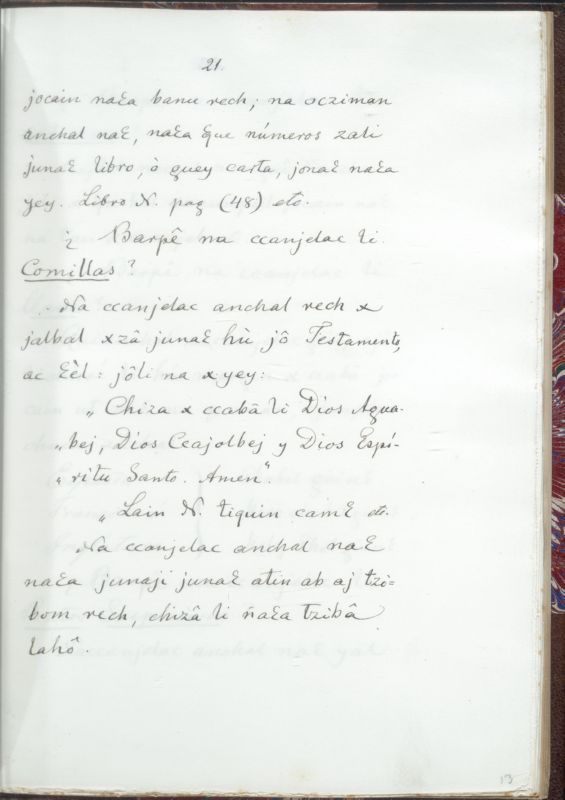 21.
jocain naƐa banu rech; na ocziman
anchal naƐ, naƐa Ɛque números zali
junaƐ libro, ò quey carta, jonaƐ naƐa
yey. Libro N. pag (48) etc.
¿ Barpê na ccanjelac li
Comillas?
Na ccanjelac anchal rech x
jalbal xzâ junaƐ hù jô Testamento,
ac Ɛèl: jôli na xyey:
„ Chiza x ccabâ li Dios Agua-
„ bej, Dios Ccajolbej y Dios Espí-
„ ritu Santo. Amen".
„ Lain N. tiquin camƐ etc.
Na ccanjelac anchal naƐ
naƐa junaji junaƐ atin ab aj tzi=
bom rech, chizâ li naƐa tzibâ
lahô.
13